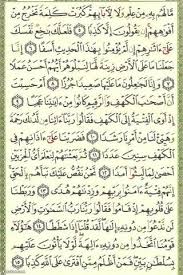 مَّا لَهُم بِهِۦ مِنْ عِلْمٍ وَلَا لِـَٔابَآئِهِمْ كَبُرَتْ كَلِمَةً تَخْرُجُ مِنْ
أَفْوَٰهِهِمْ إِن يَقُولُونَ إِلَّا كَذِبًا ٥ فَلَعَلَّكَ بَٰخِعٌ نَّفْسَكَ
عَلَىٰٓ ءَاثَٰرِهِمْ إِن لَّمْ يُؤْمِنُوا۟ بِهَٰذَا ٱلْحَدِيثِ أَسَفًا ٦
إِنَّا جَعَلْنَا مَا عَلَى ٱلْأَرْضِ زِينَةً لَّهَا لِنَبْلُوَهُمْ أَيُّهُمْ أَحْسَنُ عَمَلًا
٧ وَإِنَّا لَجَٰعِلُونَ مَا عَلَيْهَا صَعِيدًا جُرُزًا ٨ أَمْ حَسِبْتَ
أَنَّ أَصْحَٰبَ ٱلْكَهْفِ وَٱلرَّقِيمِ كَانُوا۟ مِنْ ءَايَٰتِنَا عَجَبًا
٩ إِذْ أَوَى ٱلْفِتْيَةُ إِلَى ٱلْكَهْفِ فَقَالُوا۟ رَبَّنَآ ءَاتِنَا مِن لَّدُنكَ رَحْمَةً
وَهَيِّئْ لَنَا مِنْ أَمْرِنَا رَشَدًا ١٠ فَضَرَبْنَا عَلَىٰٓ ءَاذَانِهِمْ فِى
ٱلْكَهْفِ سِنِينَ عَدَدًا ١١ ثُمَّ بَعَثْنَٰهُمْ لِنَعْلَمَ أَىُّ ٱلْحِزْبَيْنِ
أَحْصَىٰ لِمَا لَبِثُوٓا۟ أَمَدًا ١٢ نَّحْنُ نَقُصُّ عَلَيْكَ نَبَأَهُم بِٱلْحَقِّ
إِنَّهُمْ فِتْيَةٌ ءَامَنُوا۟ بِرَبِّهِمْ وَزِدْنَٰهُمْ هُدًى ١٣ وَرَبَطْنَا
عَلَىٰ قُلُوبِهِمْ إِذْ قَامُوا۟ فَقَالُوا۟ رَبُّنَا رَبُّ ٱلسَّمَٰوَٰتِ وَٱلْأَرْضِ
لَن نَّدْعُوَا۟ مِن دُونِهِۦٓ إِلَٰهًا لَّقَدْ قُلْنَآ إِذًا شَطَطًا ١٤ هَٰٓؤُلَآءِ
قَوْمُنَا ٱتَّخَذُوا۟ مِن دُونِهِۦٓ ءَالِهَةً لَّوْلَا يَأْتُونَ عَلَيْهِم
بِسُلْطَٰنٍۭ بَيِّنٍ فَمَنْ أَظْلَمُ مِمَّنِ ٱفْتَرَىٰ عَلَى ٱللَّهِ كَذِبًا ١٥